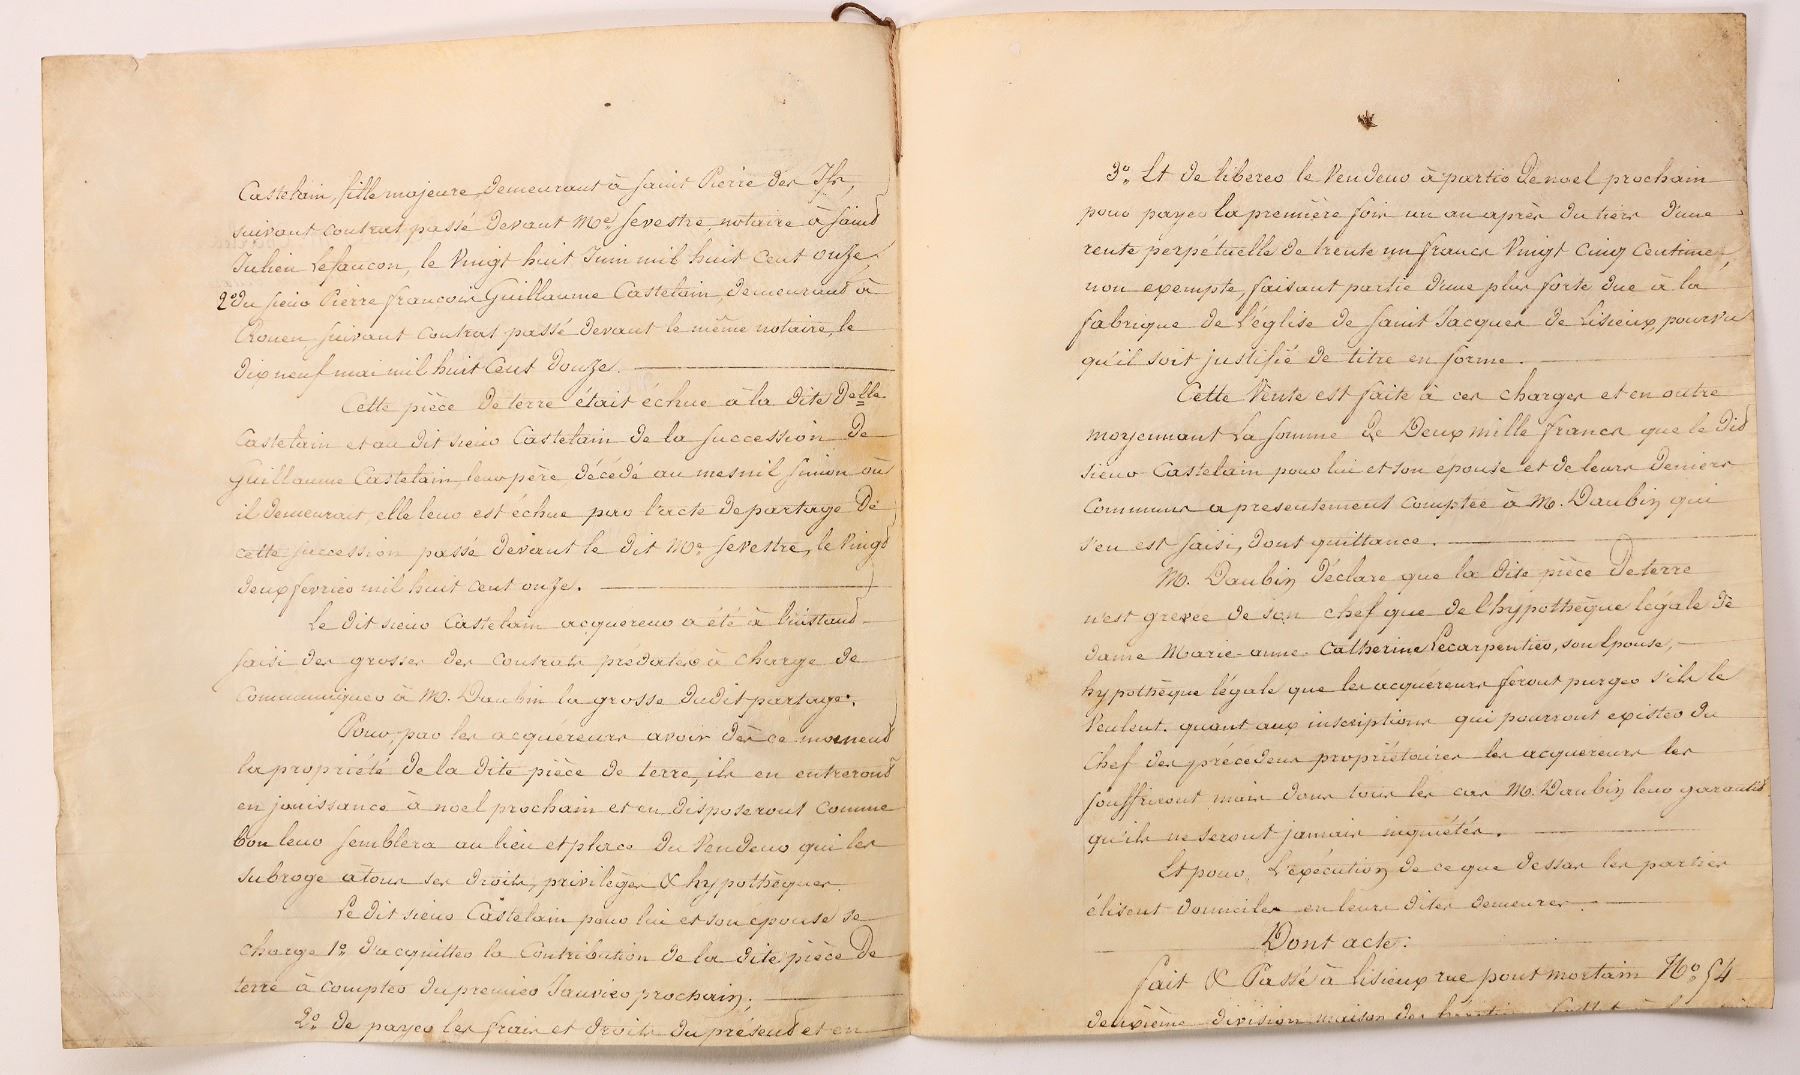 Castelain, fille majeure, demeurant à Saint Pierre des Ifs,
suivant contrat passé devant Me. Sevestre, notaire à Saint
Julien Lefaucon, le vingt huit Juin mil huit cent onze
2o. du sieur Pierre françois Guillaume Castelain, demeurant à
suivant contrat passé devant le même notaire, le
dix neuf mai mil huit Cent douze.
Cette pièce de terre était échue à la dite Delle
Castelain et au dit sieur Castelain de la succession de
Guillaume Castelain, leur père décédé au mesnil Simon où
il demeurait, elle leur est échue par l'acte de partage de
cette succession passé devant le dit Me. Sevestre, le vingt
deux fevrier mil huit cent onze.
Le dit sieur Castelain acquéreur a été à l'instant
saisi des grosses des contrats prédatés à charge de
communiquer à M. Daubin la grosse dudit partage.
Pour, par les acquéreurs avoir dès ce moment
la propriété de la dite pièce de terre, ils en entreront
en jouissance à noel prochain et en disposeront comme
bon leur semblera au lieu et place du Vendeur qui les
subroge à tous ses droits, privilèges & hypothèques.
Le dit sieur Castelain pour lui et son épouse se
charge 1o. d'acquitter la Contribution de la dite pièce de
terre à compter du premier Janvier prochain;
2o. de payer les frais et droits du présent et en
3o. Et de liberer le Vendeur à partir de noel prochain
pour payer la première fois un an après du tiers d'une
rente perpétuelle de trente un francs Vingt Cinq Centimes,
non exempte, faisant partie d'une plus forte due à la
fabrique de l'église de Saint Jacques de Lisieux, pourvu
qu'il soit justifié de titre en forme.
Cette Vente est faite à ces charges et en outre
moyennant la somme de Deux mille francs que le dit
sieur Castelain pour lui et son épouse et de leurs deniers
communs a presentement comptée à M. Daubin qui
s'en est saisi, dont quittance.
M. Daubin déclare que la dite pièce de terre
n'est grevee de son chef que de l'hypothèque légale de
dame Marie-anne-Catherine Lecarpentier, son Epouse,
hypothèque légale que les acquereurs feront purger s'ils le
Veulent. quant aux inscriptions qui pourront exister du
Chef des précédens propriétaires les acquereurs les
souffriront mais dans tous les cas M. Daubin leur garantit
qu'ils ne seront jamais inquiétés.
Et pour l'exécution de ce que dessus les parties
élisent domiciles en leurs dites demeures.
Dont acte.
fait & Passé à Lisieux rue pont mortain No. 54
deuxième division maison des